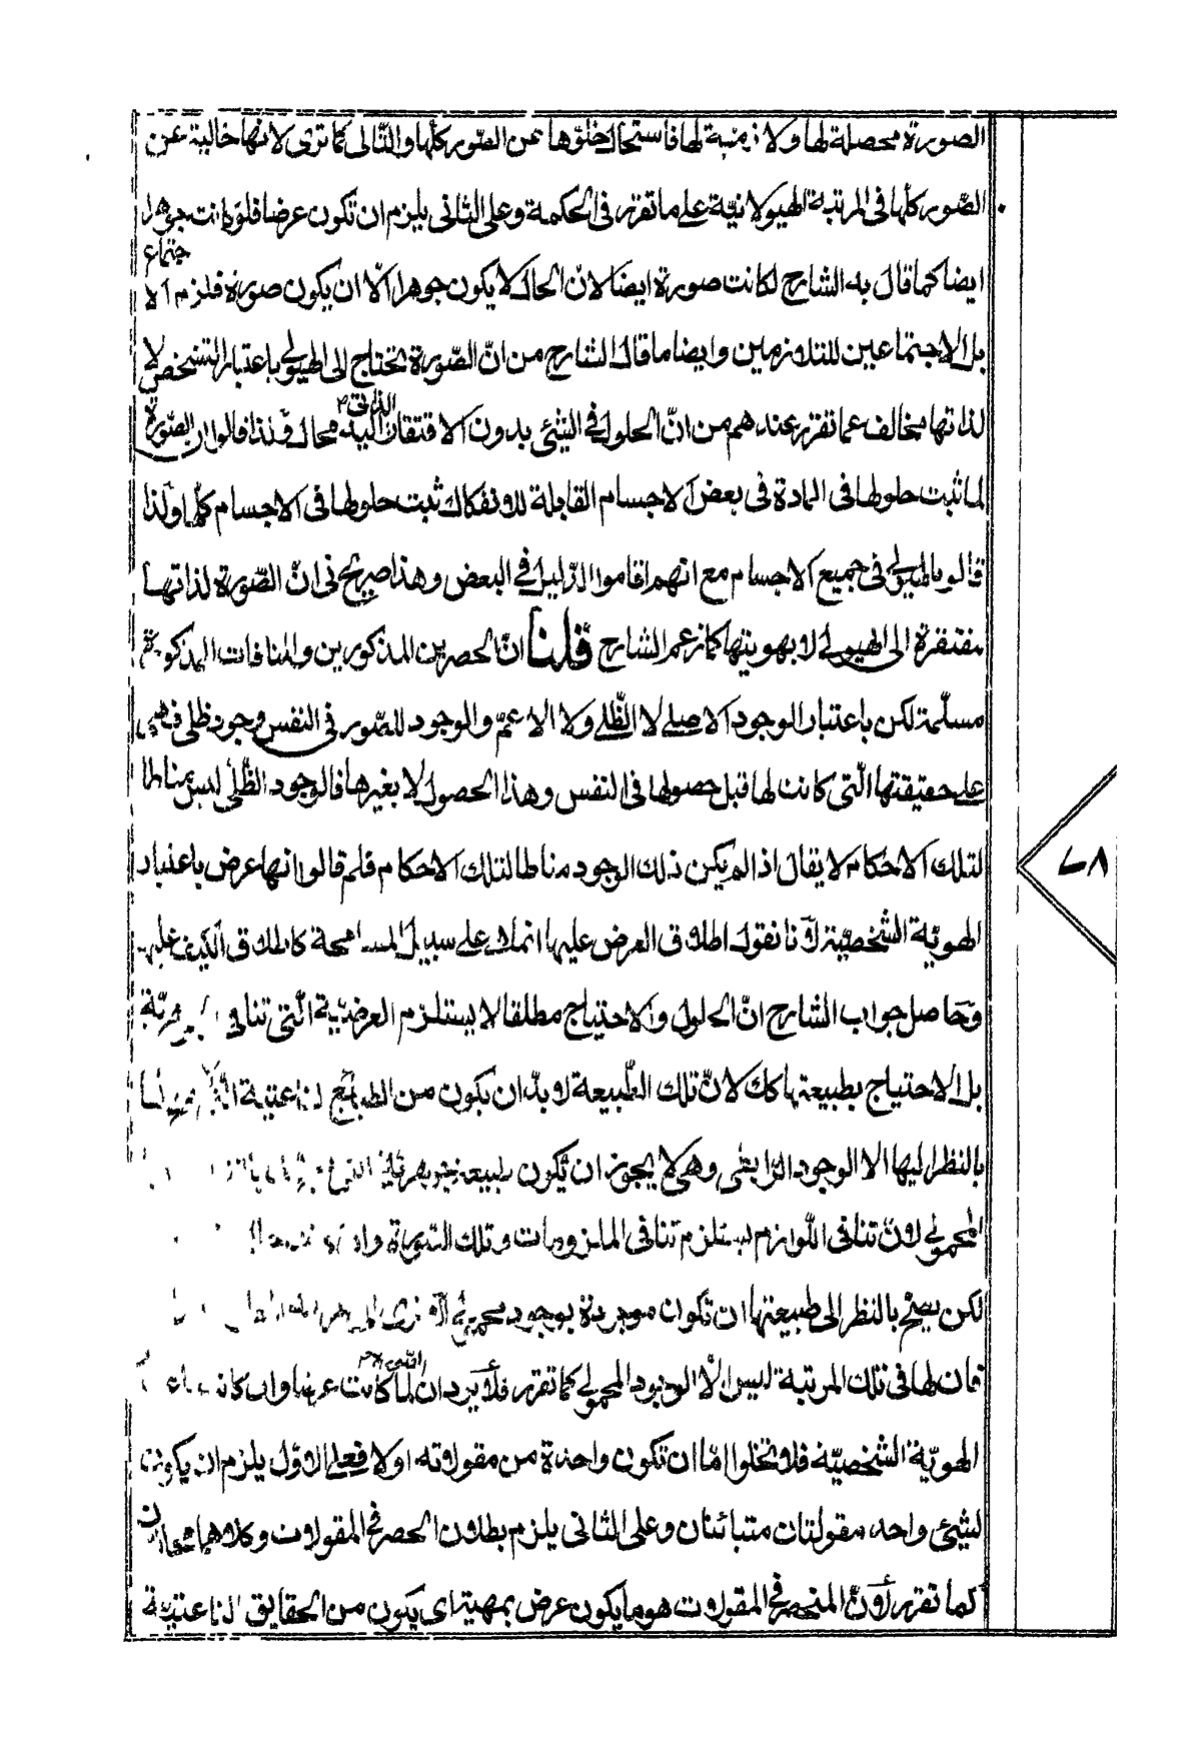 الصورة محصلة لها ولا زمنية لها فاستحال خلوّها عن الصّور كلّها والتّالى كما ترى لانها خالية عن
الصّور كلّها فى المرتبة الهيولانيّة على ما تقرّر فى الحكمة وعلى الثانى يلزم ان تكون عرضا فلو كانت جوهرا
ايضا كما قال به الشارح لكانت صورة ايضا لانّ الحالّ لا يكون جوهرا الّا ان يكون صورة فلزم الاجتماع
بل الاجتماعين للمتلازمين وايضا ما قال الشارح من انّ الصّورة تحتاج الى الهيولى باعتبار التشخص لا
لذاتها مخالف عما تقرّر عندهم من انّ الحلول فى الشئ بدون الافتقار الذاتى اليه محال ولذا قالوا ان الصّورة
لما ثبت حلولها فى المادة فى بعض الاجسام القابلة للانفكاك ثبت حلولها فى الاجسام كلّها ولذا
قالو بالهيولى فى جميع الاجسام مع انهم اقاموا الدّليل فى البعض وهذا صريح فى انّ الصّورة لذاتها
مفتقرة الى الهيولى لا بهويتها كما زعم الشارح قلنا انّ الحصرين المذكورين والمنافات المذكورة
مسلّمة لكن باعتبار الوجود الاصلى لا الظّلى ولا الاعمّ والوجود للصّور فى النفس وجود ظلى فهى
على حقيقتها الّتى كانت لها قبل حصولها فى النفس وهذا الحصول لا يغيرها فالوجود الظّلى ليس مناطا
لتلك الاحكام لا يقال اذا لم يكن ذلك الوجود مناطا لتلك الاحكام فلم قالوا انها عرض باعتبار
الهويّة الشّخصيّة لانّا نقول اطلاق العرض عليها انما هو على سبيل المسامحة كاطلاق الكيف عليها
وحاصل جواب الشارح انّ الحلول والاحتياج مطلقا لا يستلزم العرضيّة الّتى تنافى الجوهريّة
بل الاحتياج بطبيعتها كك لانّ تلك الطّبيعة لا بدّ ان يكون من الطبائع الناعتية
بالنظر اليها الا الوجود الرّابطى وهى لا يجوز ان تكون طبيعة جوهرية
المحمولى لانّ تنافى اللّوازم يستلزم تنافى الملزومات وتلك الصّورة
لكن يصحّ بالنظر الى طبيعتها ان تكون موجودة بوجود محمولى
فان لها فى تلك المرتبة ليس الّا الوجود المحمولى كما تقرّر فلا يرد ان الشئ لما كانت عرضا وان كانت
الهويّة الشّخصيّة فلا تخلوا امّا ان تكون واحدة من مقولاته او لا فعلى الاوّل يلزم ان يكون
لشئ واحد مقولتان متبائنتان وعلى الثانى يلزم بطلان الحصر فى المقولات وكلاهما محالان
كما تقرّر لانّ المنحصر فى المقولات هو ما يكون عرض بمهيته اى يكون من الحقايق الناعتيّة
٧٨